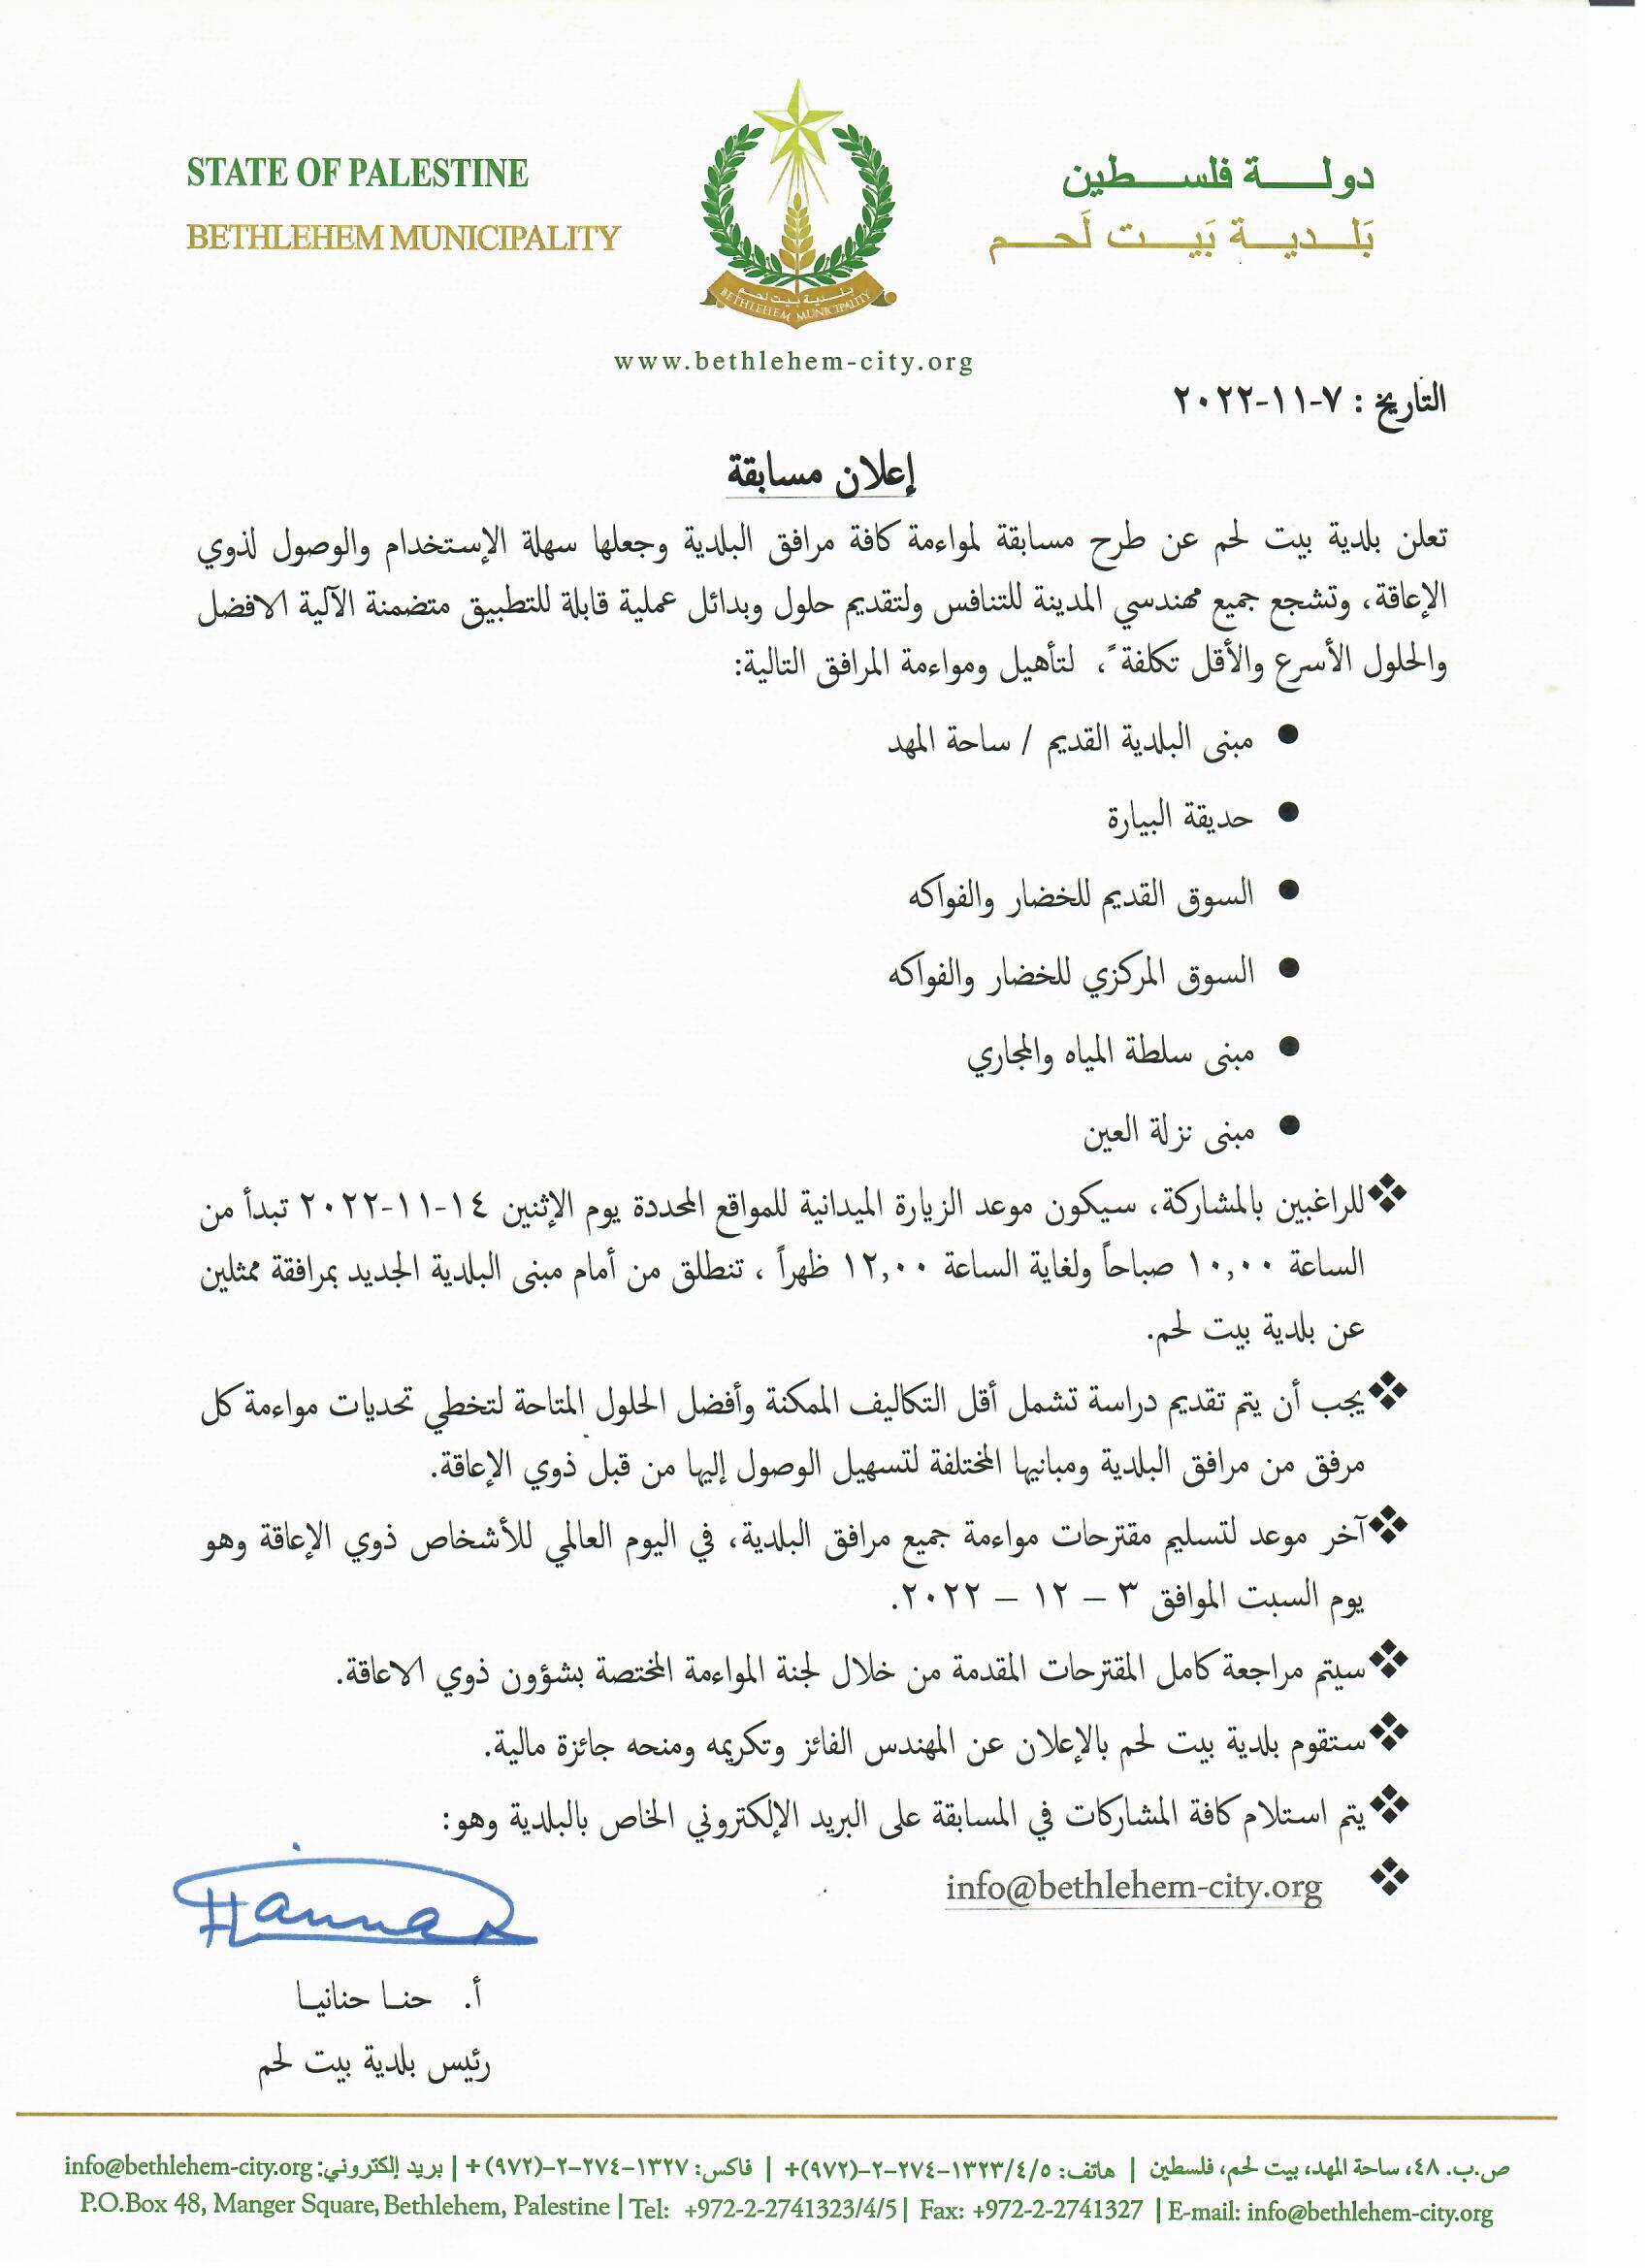 STATE OF PALESTINE
BETHLEHEM MUNICIPALITY
دولة فلسطين
بَلدية بَيت لَحم
بلدية بيت لحم
BETHLEHEM MUNICIPALITY
www.bethlehem-city.org
التاريخ : ٧-١١-٢٠٢٢
إعلان مسابقة
تعلن بلدية بيت لحم عن طرح مسابقة لمواءمة كافة مرافق البلدية وجعلها سهلة الإستخدام والوصول لذوي
الإعاقة، وتشجع جميع مهندسي المدينة للتنافس ولتقديم حلول وبدائل عملية قابلة للتطبيق متضمنة الآلية الافضل
والحلول الأسرع والأقل تكلفة ً، لتأهيل ومواءمة المرافق التالية:
● مبنى البلدية القديم / ساحة المهد
● حديقة البيارة
● السوق القديم للخضار والفواكه
● السوق المركزي للخضار والفواكه
● مبنى سلطة المياه والمجاري
● مبنى نزلة العين
❖ للراغبين بالمشاركة، سيكون موعد الزيارة الميدانية للمواقع المحددة يوم الإثنين ١٤-١١-٢٠٢٢ تبدأ من
الساعة ١٠,٠٠ صباحاً ولغاية الساعة ١٢,٠٠ ظهراً ، تنطلق من أمام مبنى البلدية الجديد بمرافقة ممثلين
عن بلدية بيت لحم.
❖ يجب أن يتم تقديم دراسة تشمل أقل التكاليف الممكنة وأفضل الحلول المتاحة لتخطي تحديات مواءمة كل
مرفق من مرافق البلدية ومبانيها المختلفة لتسهيل الوصول إليها من قبل ذوي الإعاقة.
❖ آخر موعد لتسليم مقترحات مواءمة جميع مرافق البلدية، في اليوم العالمي للأشخاص ذوي الإعاقة وهو
يوم السبت الموافق ٣ – ١٢ – ٢٠٢٢.
❖ سيتم مراجعة كامل المقترحات المقدمة من خلال لجنة المواءمة المختصة بشؤون ذوي الاعاقة.
❖ ستقوم بلدية بيت لحم بالإعلان عن المهندس الفائز وتكريمه ومنحه جائزة مالية.
❖ يتم استلام كافة المشاركات في المسابقة على البريد الإلكتروني الخاص بالبلدية وهو:
❖ info@bethlehem-city.org
أ. حنا حنانيا
رئيس بلدية بيت لحم
ص.ب. ٤٨، ساحة المهد، بيت لحم، فلسطين | هاتف: ٥/٤/١٣٢٣-٢٧٤-٢-(٩٧٢)+ | فاكس: ١٣٢٧-٢٧٤-٢-(٩٧٢)+ | بريد إلكتروني: info@bethlehem-city.org
P.O.Box 48, Manger Square, Bethlehem, Palestine | Tel: +972-2-2741323/4/5 | Fax: +972-2-2741327 | E-mail: info@bethlehem-city.org